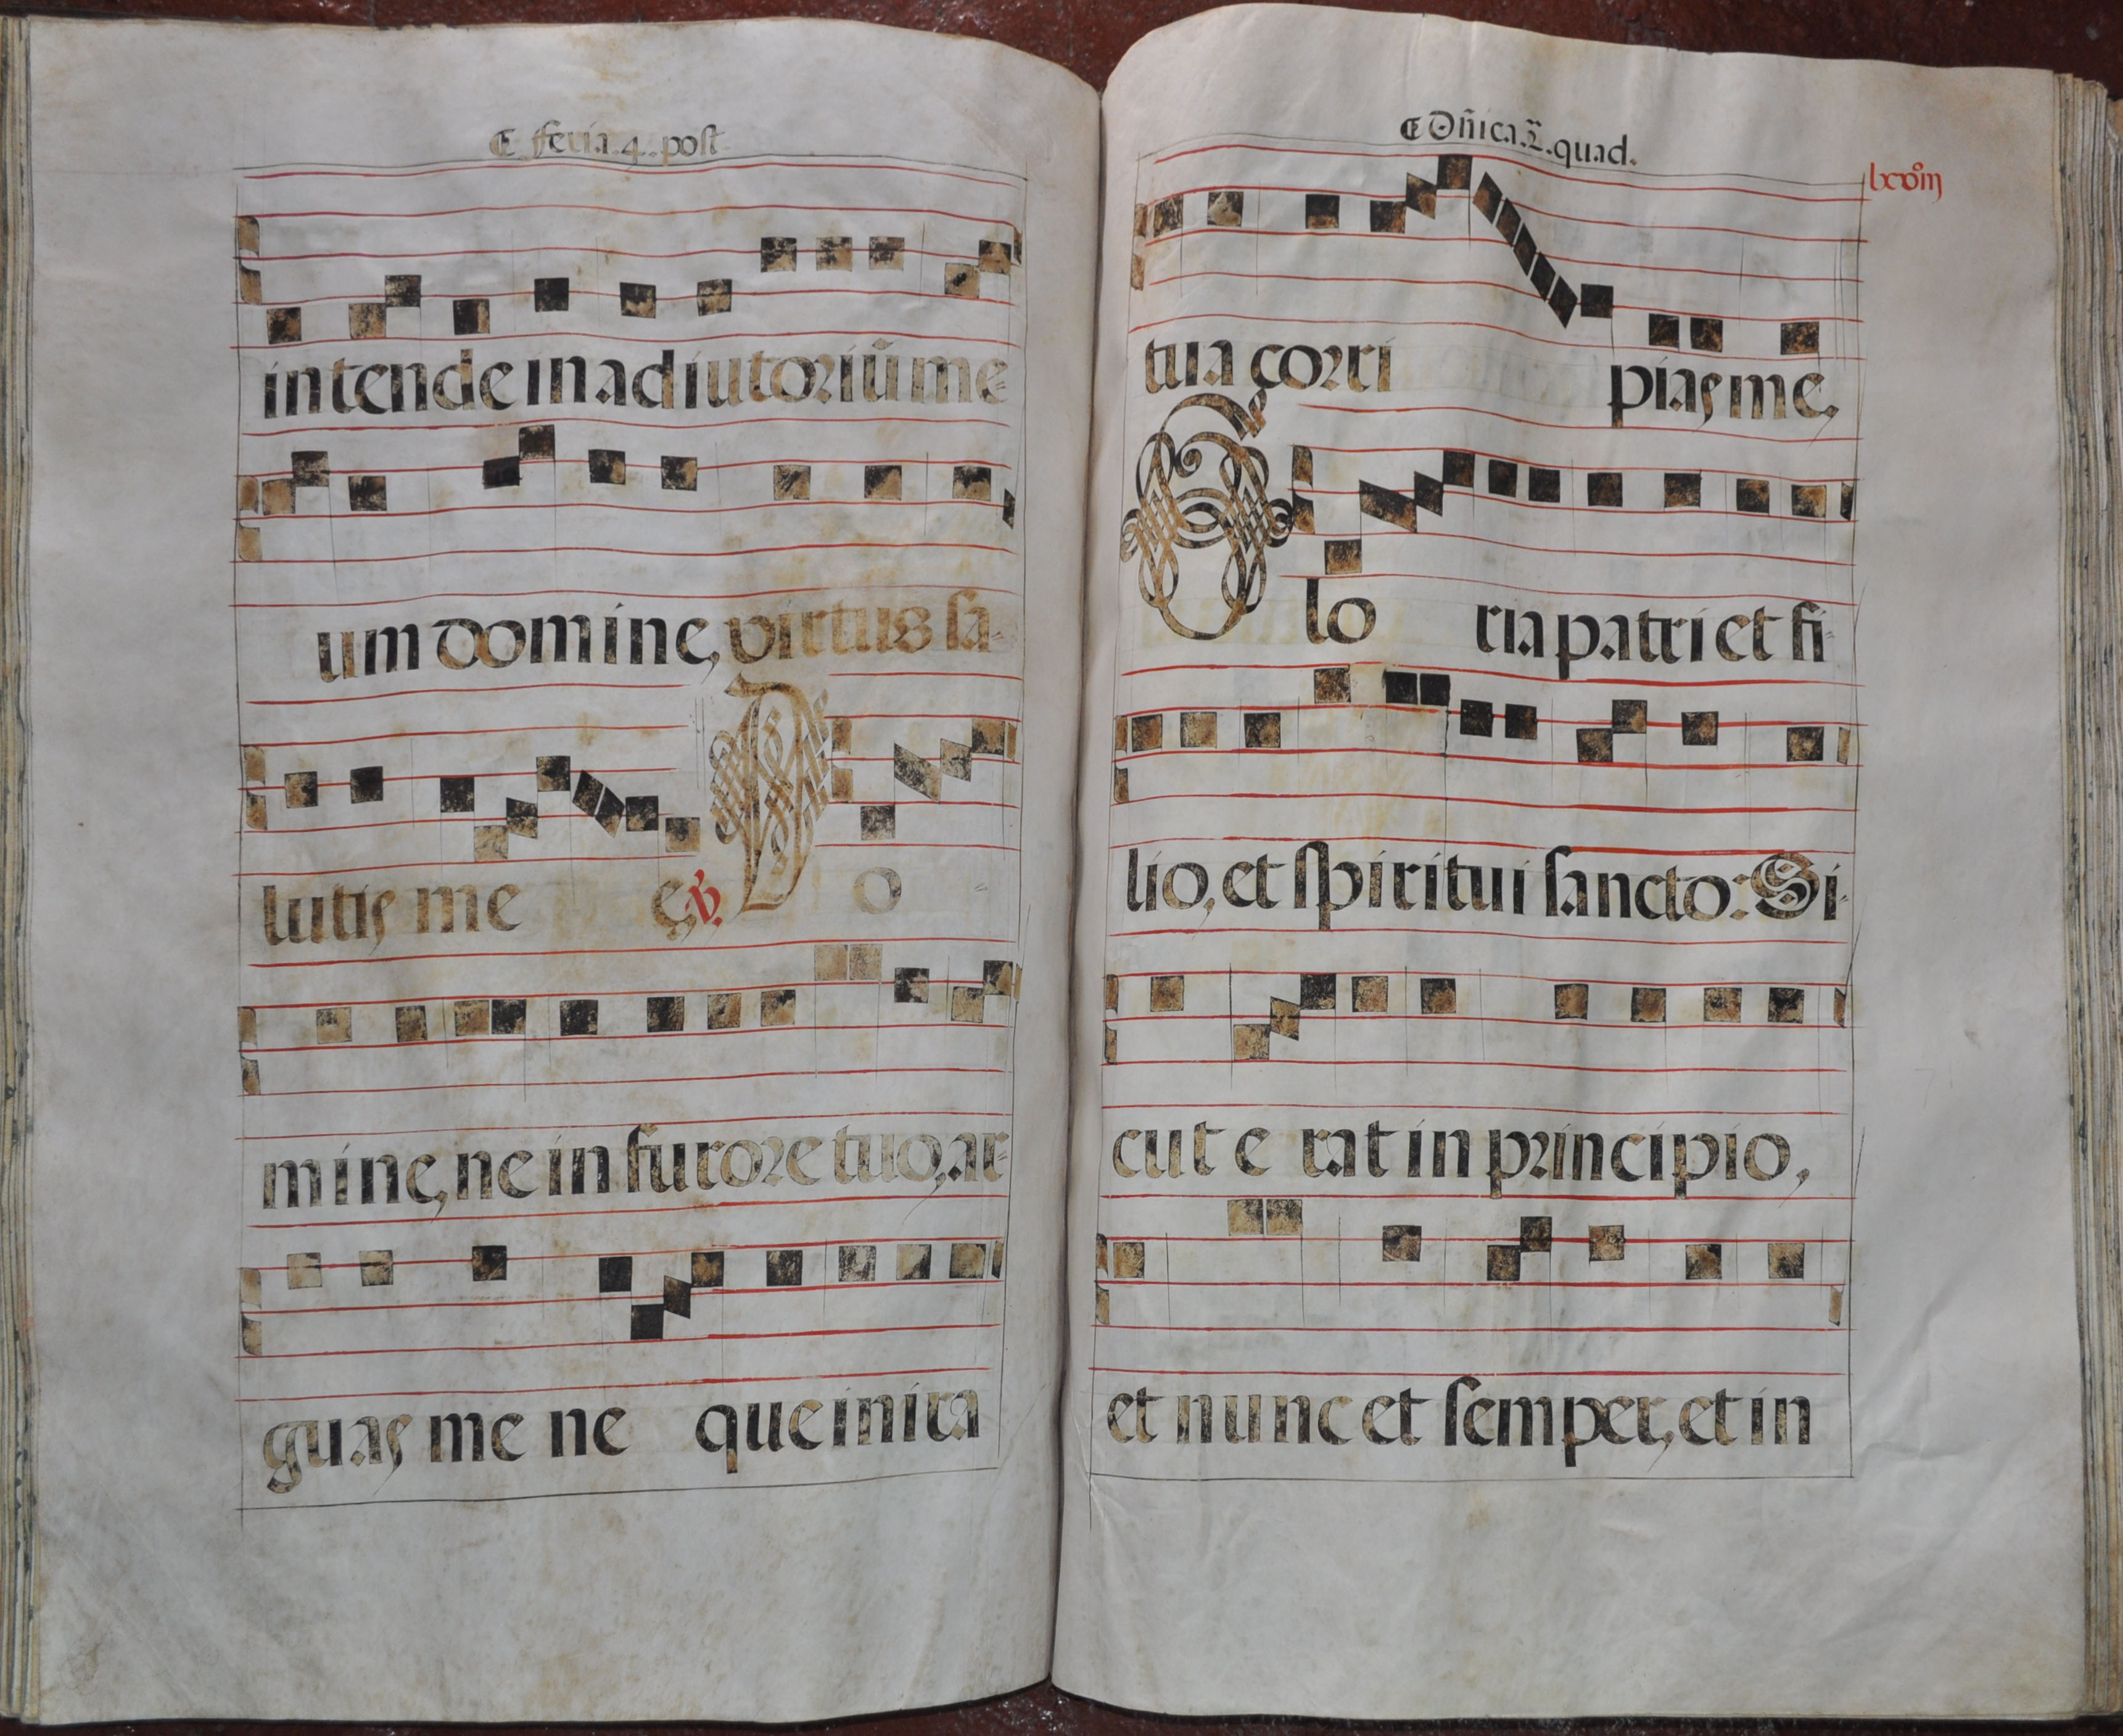 feria.4. post
intende in adiutoriū me=
um domine, virtus sa-
lutis mee, ℣. Do-
mine, ne in furore tuo, ar=
guas me neque in ira
Dñica.2.quad.
lxviij
tua corripias me,
Gloria patri et fi=
lio, et spiritui sancto: Si-
cut erat in principio,
et nunc et semper, et in